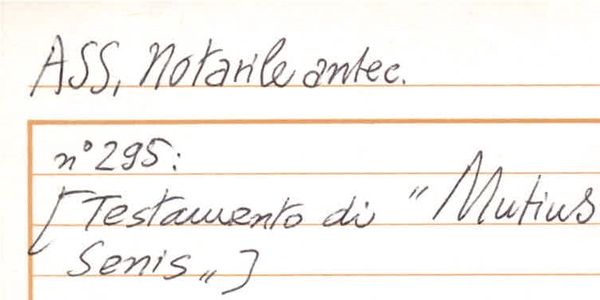 ASS, Notarile antec.
n° 295:
[Testamento di "Mutius
Senis"]